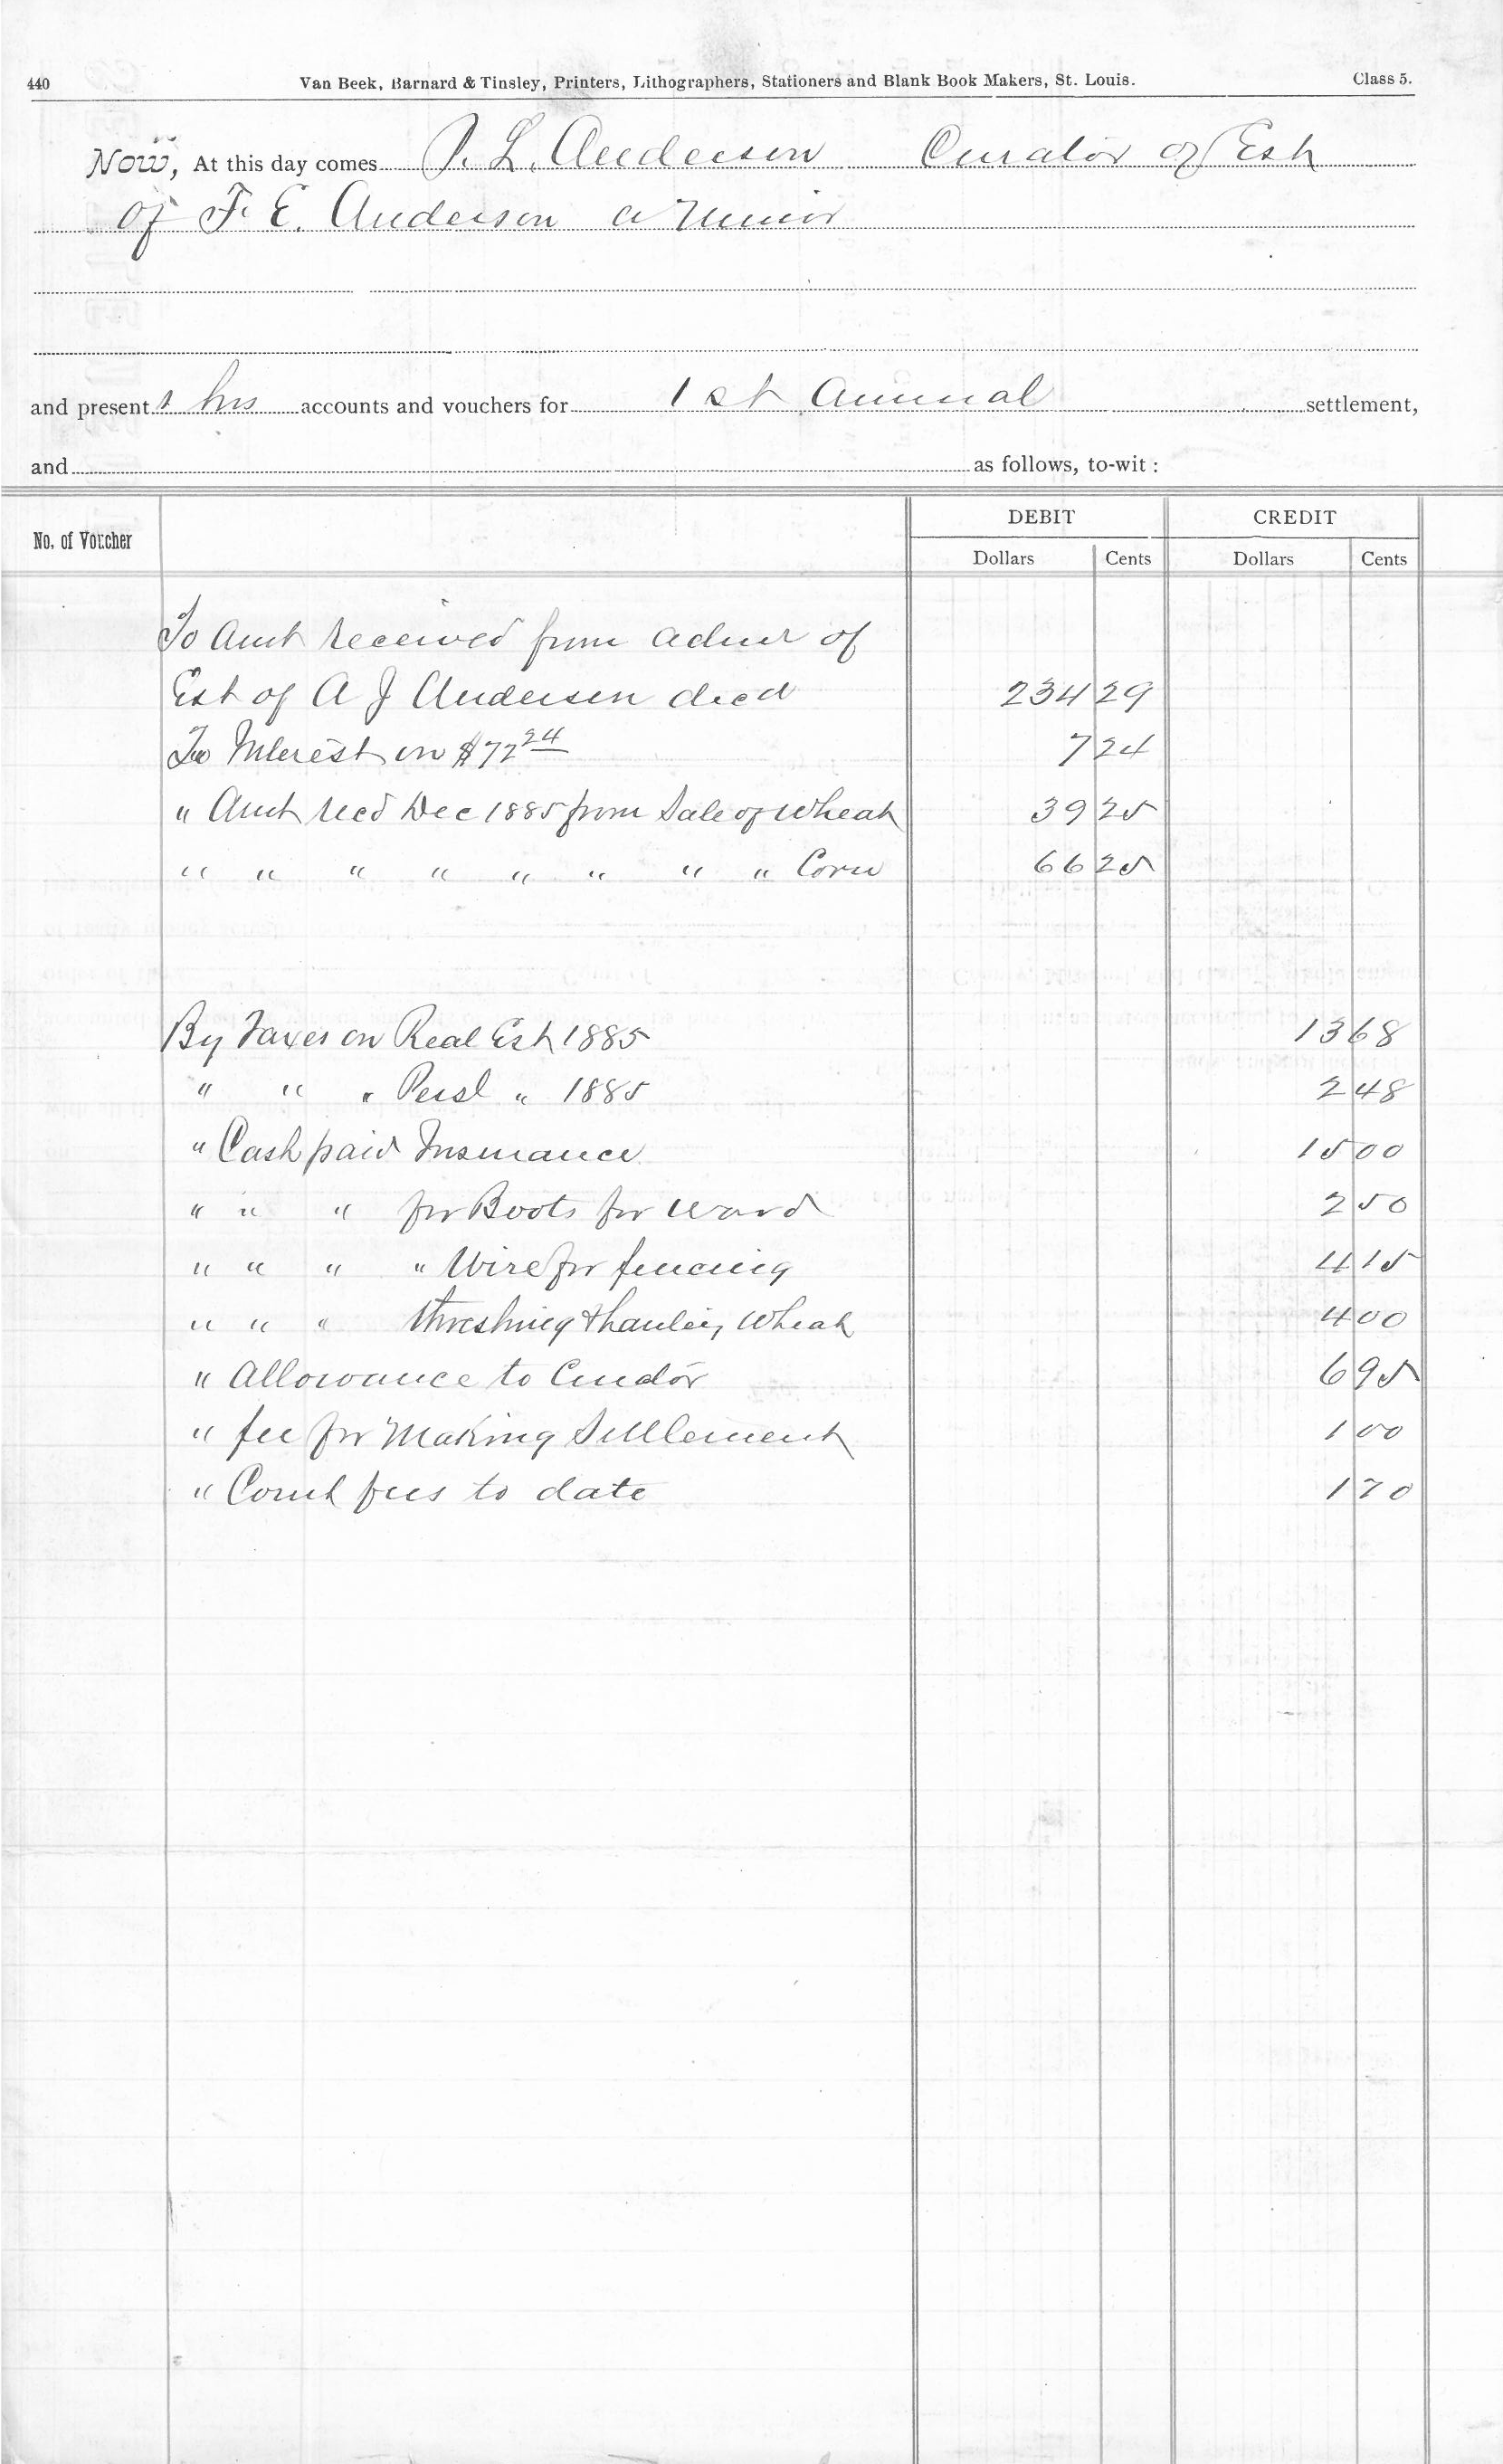 440 Van Beek, Barnard & Tinsley, Printers, Lithographers, Stationers and Blank Book Makers, St. Louis. Class 5.
Now, At this day comes P. L. Anderson Curator of Est
of F. E. Anderson a Minor
and present s his accounts and vouchers for 1st Annual settlement,
and as follows, to-wit:
No. of Voucher DEBIT CREDIT
Dollars Cents Dollars Cents
To Amt received from admr of
Est of A J Anderson decd 234 29
To Interest on $72 24 7 24
" Amt recd Dec 1885 from Sale of Wheat 39 25
" " " " " " " " Corn 66 25
By Taxes on Real Est 1885 13 68
" " " Persl " 1885 2 48
" Cash paid Insurance 15 00
" " " for Boots for ward 2 50
" " " " Wire for fencing 4 15
" " " threshing & hauling Wheat 4 00
" Allowance to Curator 6 95
" fee for Making Settlement 1 00
" Court fees to date 1 70